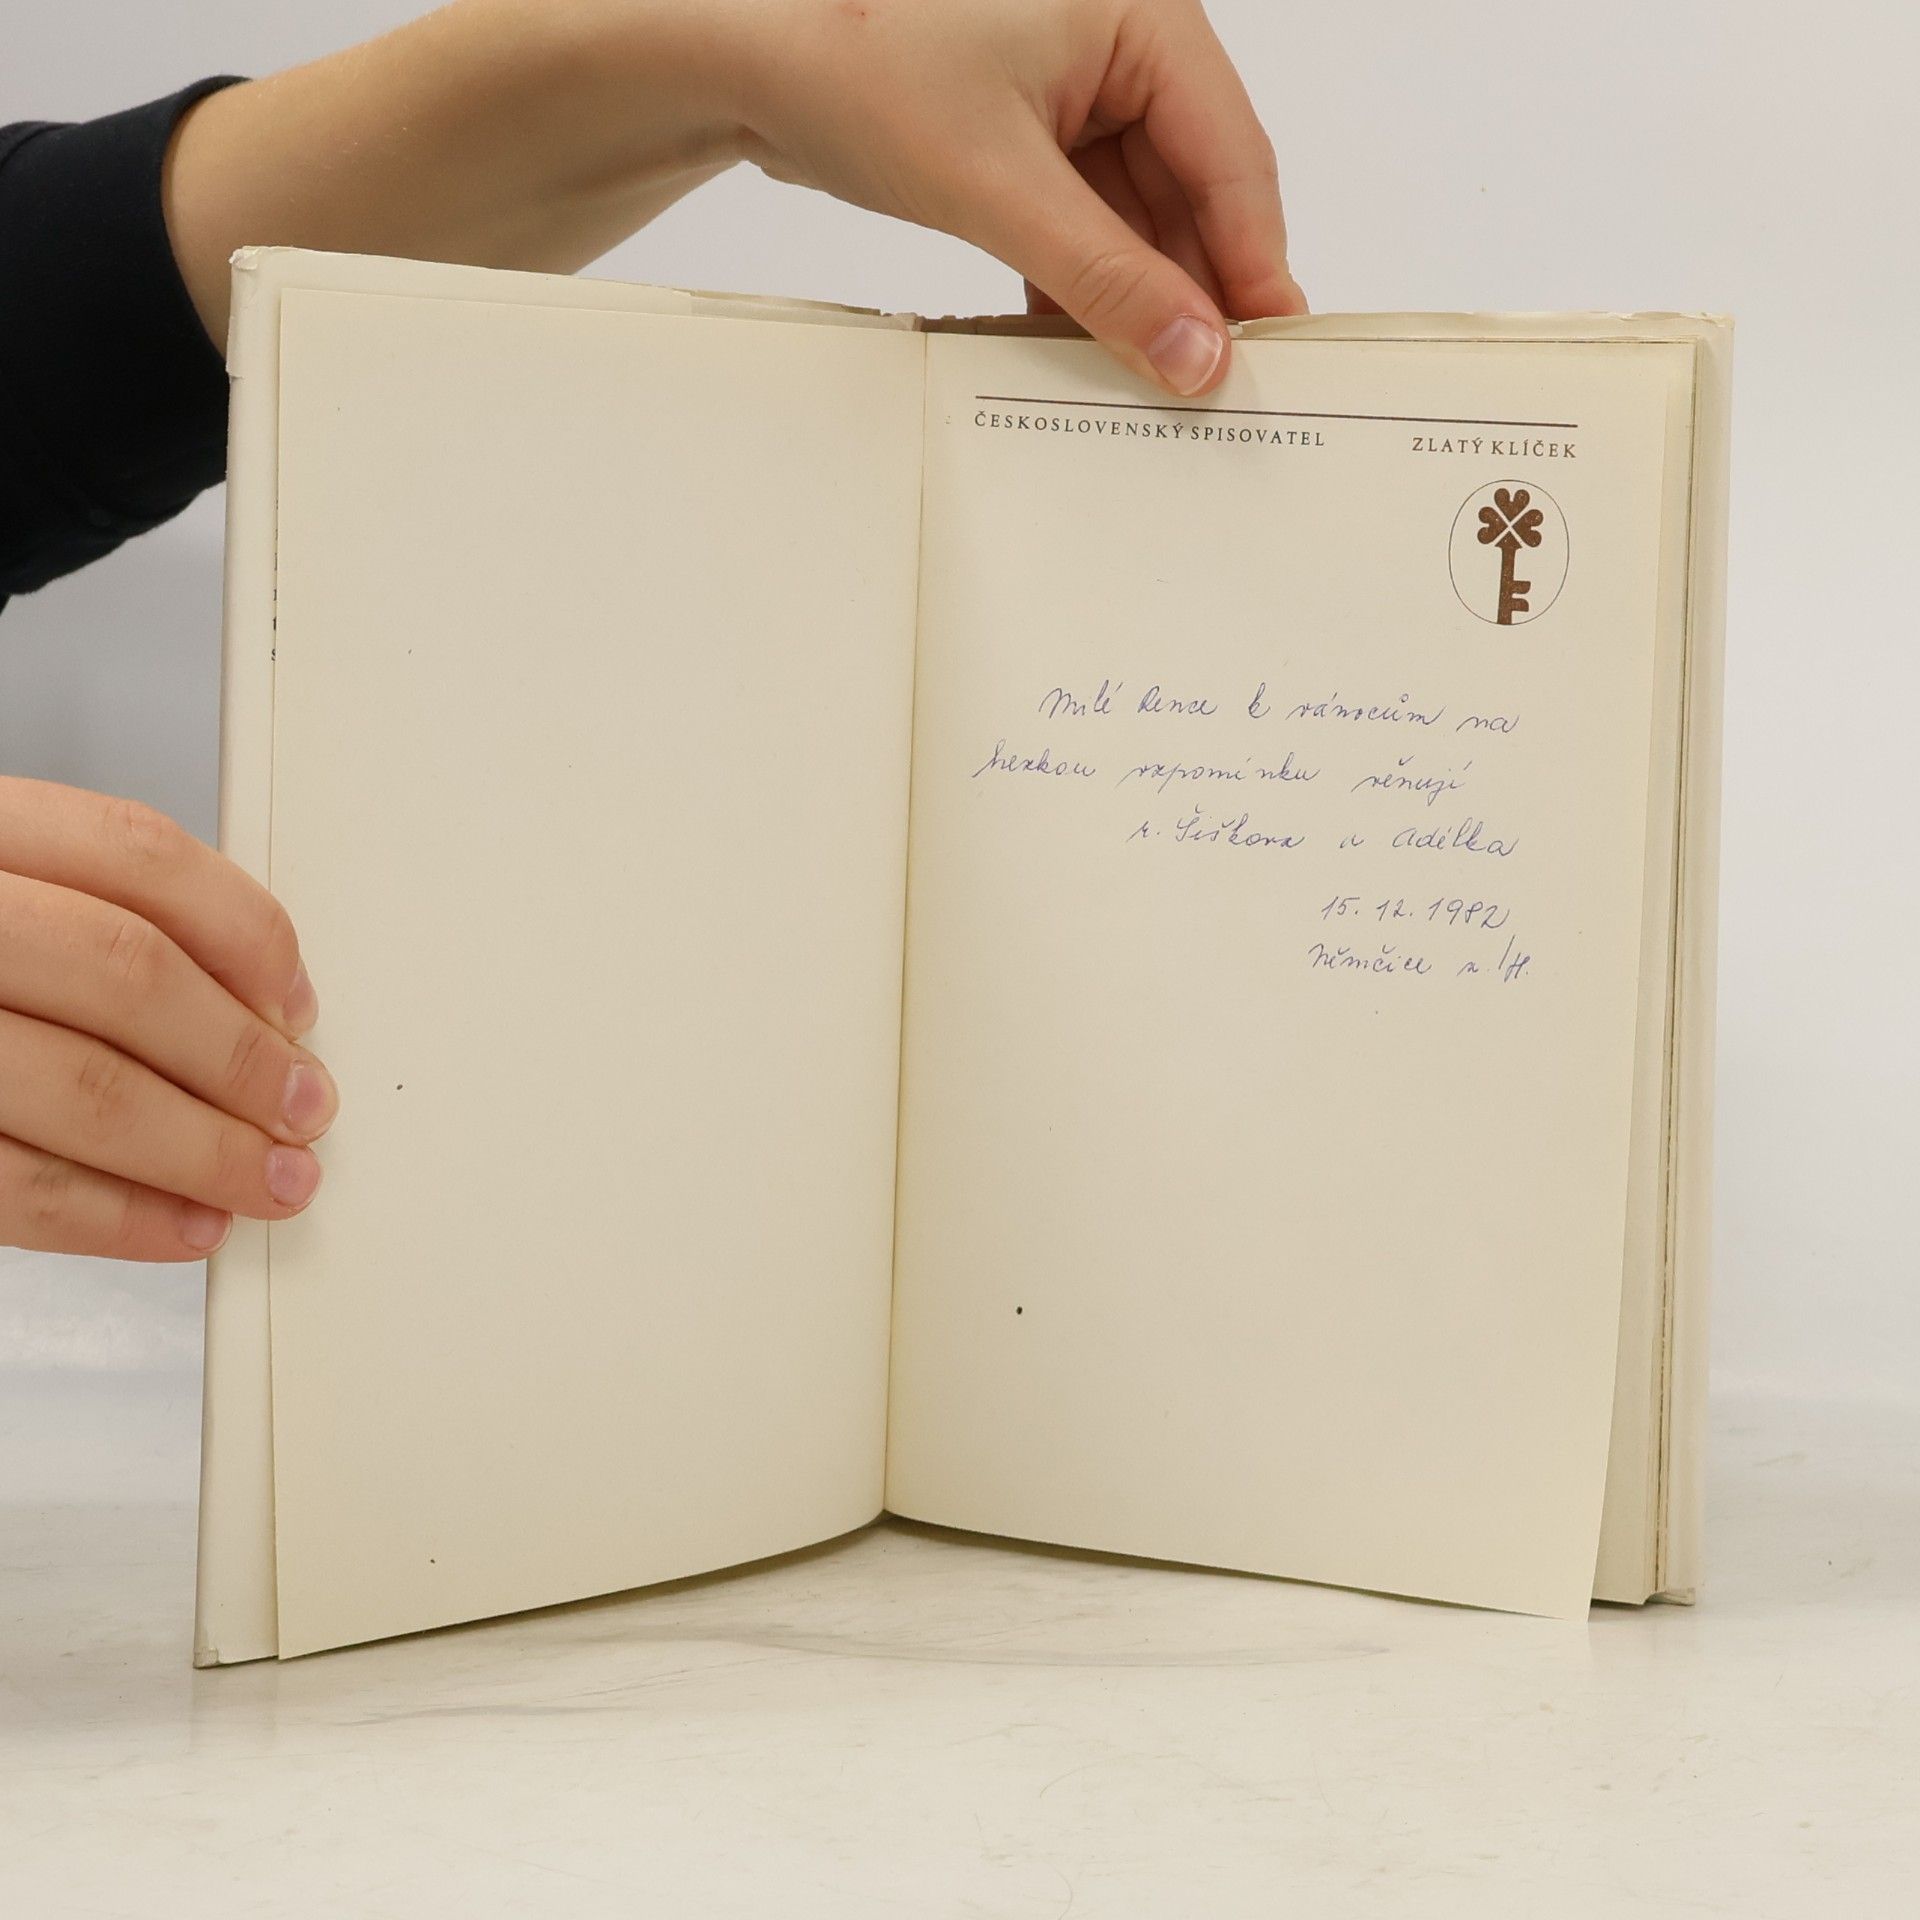 ČESKOSLOVENSKÝ SPISOVATEL ZLATÝ KLÍČEK
Milé Rence k vánocům na
hezkou vzpomínku věnují
r. Šiškova a Adélka
15. 12. 1982
Němčice n./H.